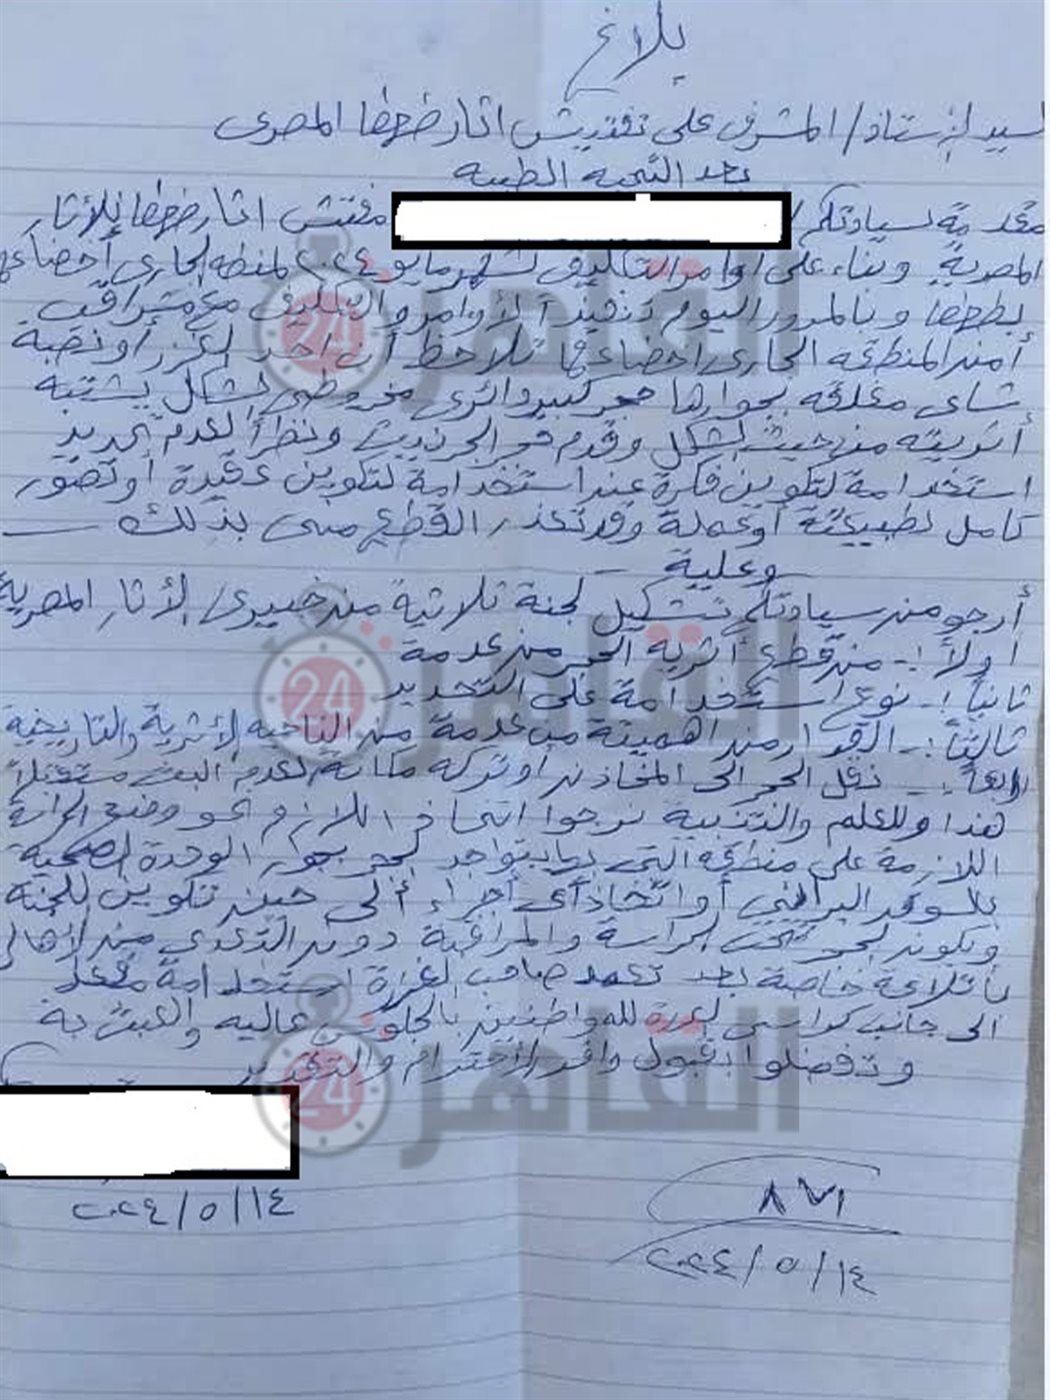 بلاغ
السيد الأستاذ / المشرف على تفتيش اثار طهطا المصرى
بعد التحية الطيبة
مقدمة لسيادتكم / مفتش اثار طهطا للأثار
المصرية وبناء على اوامر التكليف لشهر مايو ٢٠٢٤ لمنطقه الجارى أخضاعها
بطهطا وبالمرور اليوم تنفيذاً لأوامر والتكليف مع مشراقب
أمن المنطقه الجارى اخضاعها تلاحظ أن احد الغرز أو نصبة
شاى مغلقه بجوارها حجر كبير دائرى مخروطى الشكل يشتبه
أثريته من حيث الشكل وقدم حجر الجرنديت ونظراً لعدم تحديد
استخدامة لتكوين فكرة عند استخدامة لتكوين عقيدة أو تصور
كامل لطبيعتة أو عملة وقد تعذر القطع منى بذلك
وعلية
أرجو من سيادتكم تشكيل لجنة ثلاثية من خبيرى الأثار المصرية
اولاً :- من قطع أثرية الحجر من عدمة
ثانياً :- نوع استخدامة على التحديد
ثالثاً :- القرار من اهميتة من عدمة من الناحيه الأثرية والتاريخية
رابعاً :- نقل الحجر الى المخازن أو تركه مكانة لعدم البت مستقبلاً
هذا وللعلم والتنبية نرجوا اتخاذ اللازم نحو وضع الحراسة
اللازمة على منطقه التى بها يتواجد الحجر بجوار الوحدة الصحية
بالسوهد البراني أو اتخاذ أى أجراء ألى حين تكوين اللجنة
ويكون الحجر تحت الحراسة والمراقبة دون التعدى من الأهالى
بأتلافة خاصة بعد تعمد صاحب الغرزة استخدامة مقعد
الى جانب كراسى الغرزة للمواطنين بالجلوس عاليه والعبث بة
وتفضلوا بقبول وافر الأحترام والتقدير
٢٠٢٤/٥/١٤
٨٧١
٢٠٢٤/٥/١٤
القاهرة 24
القاهرة 24
القاهرة 24